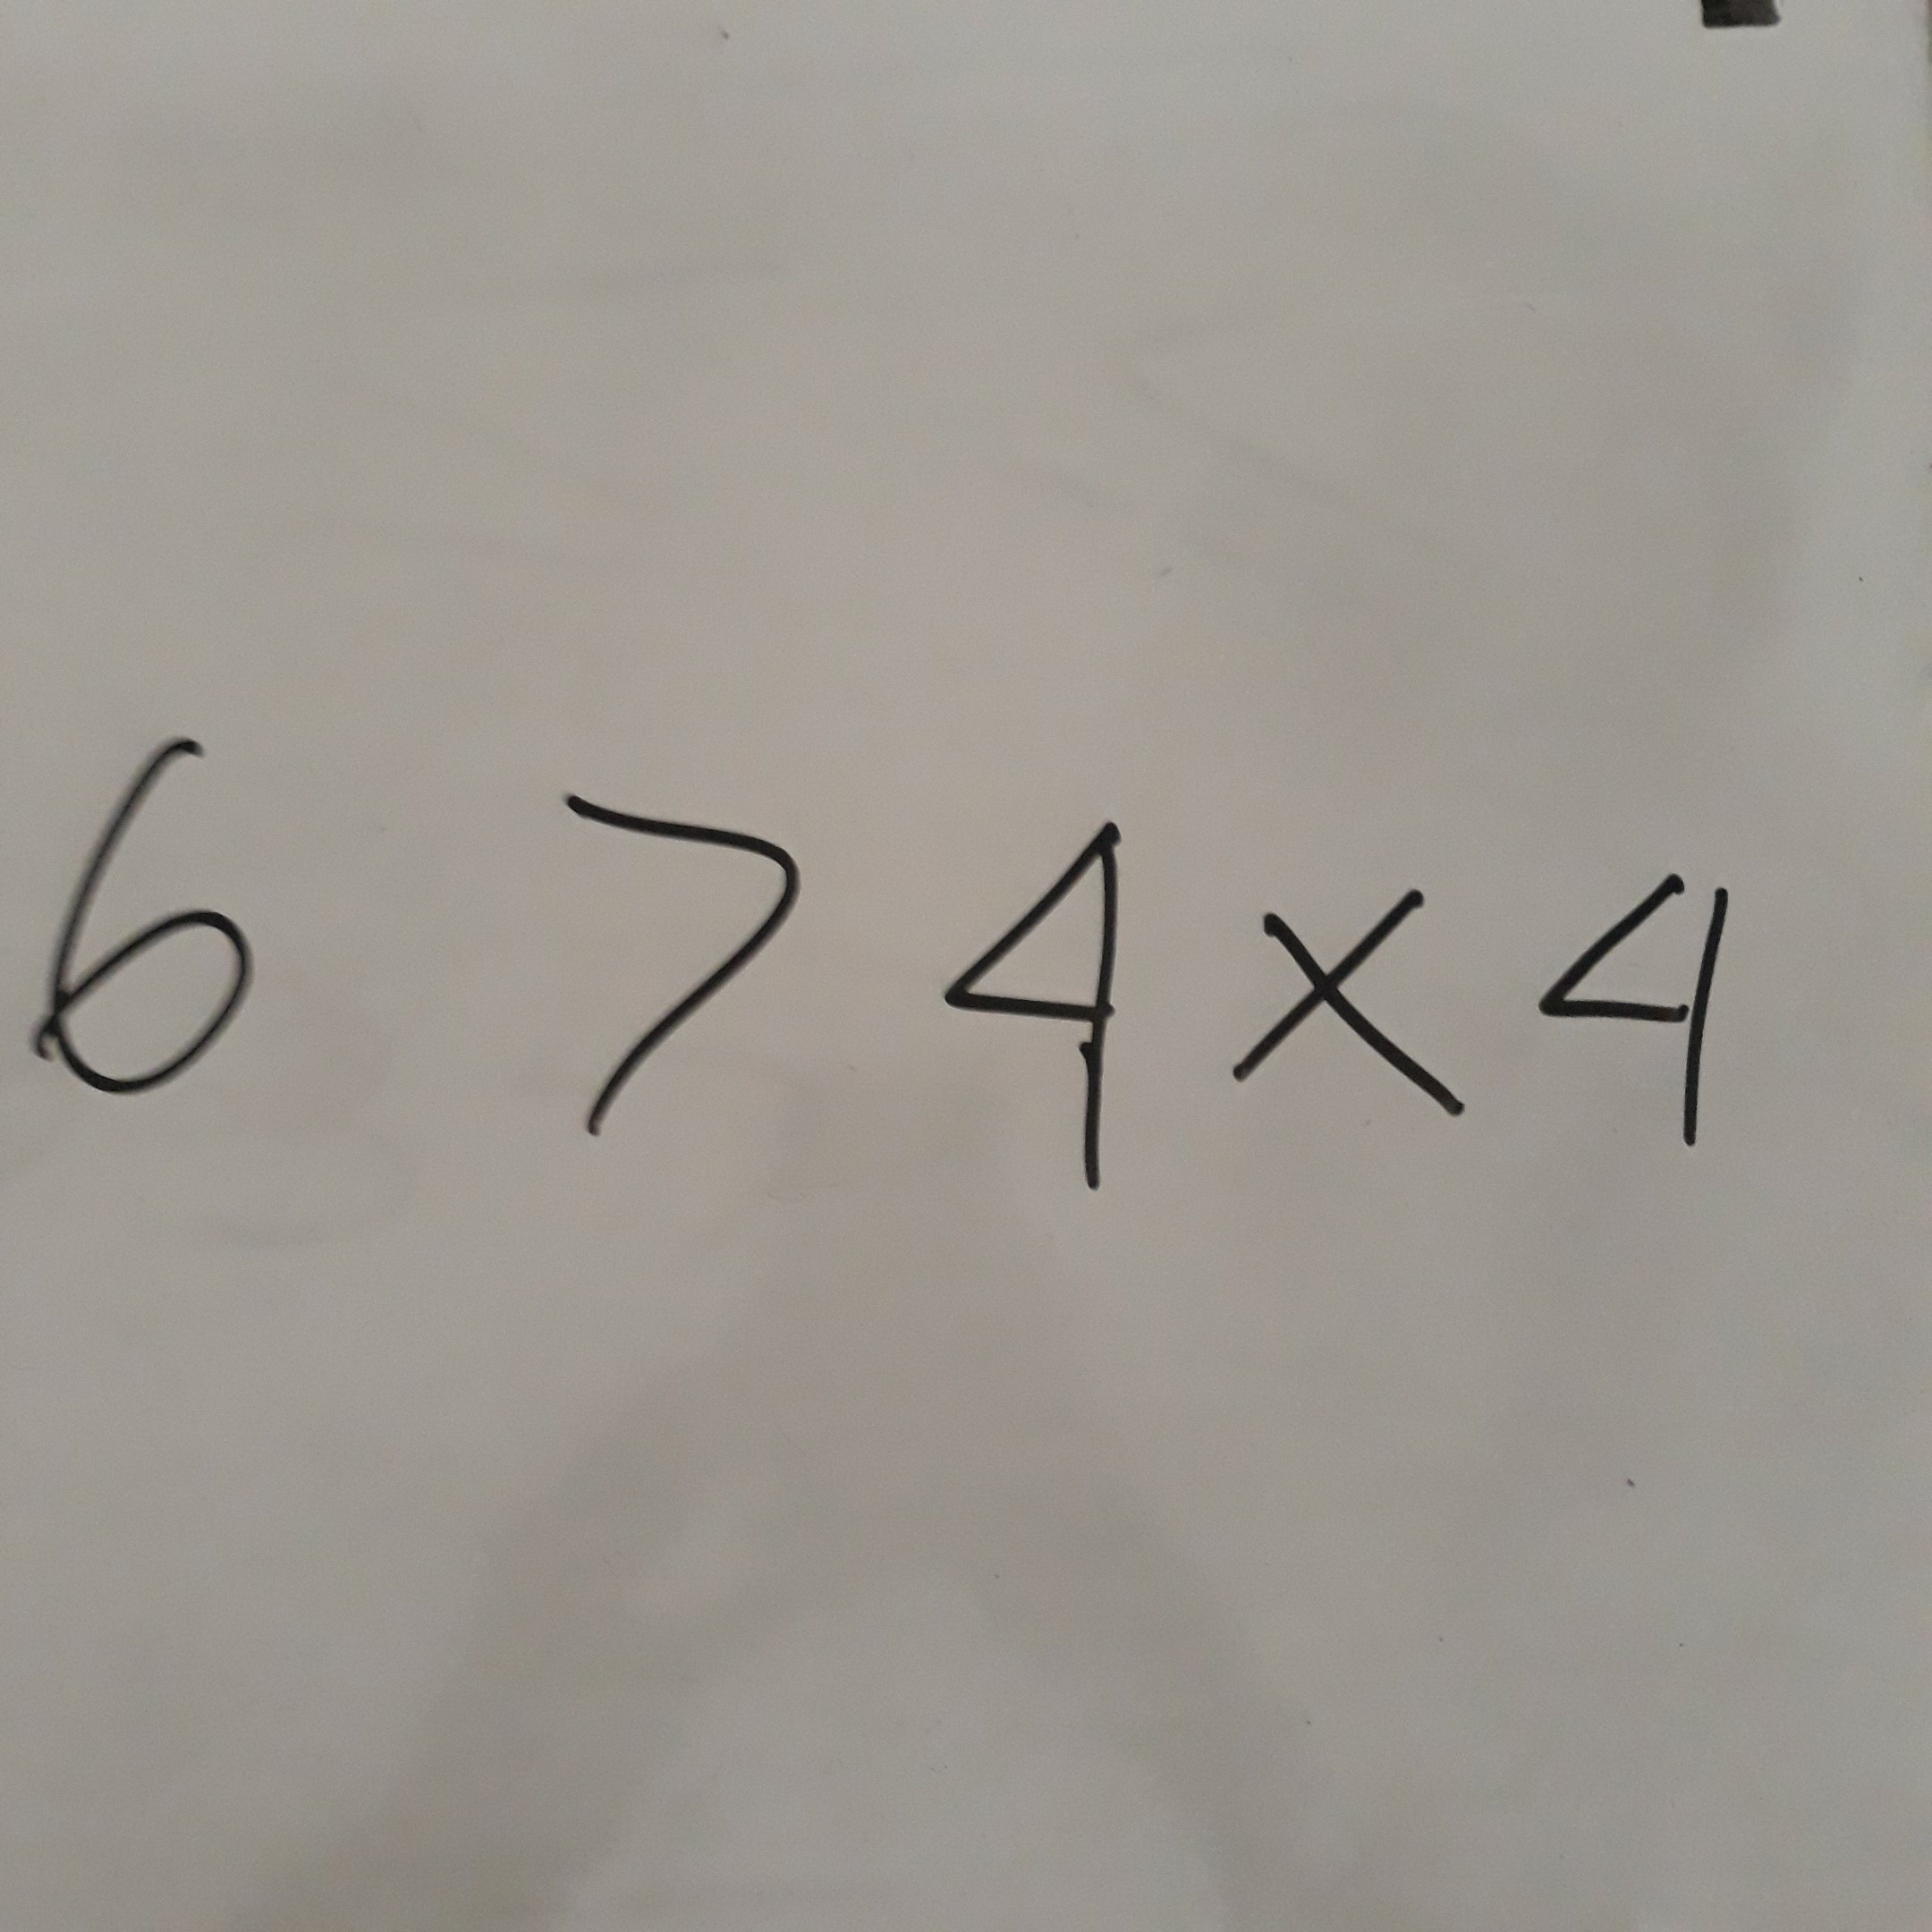 6 74×4